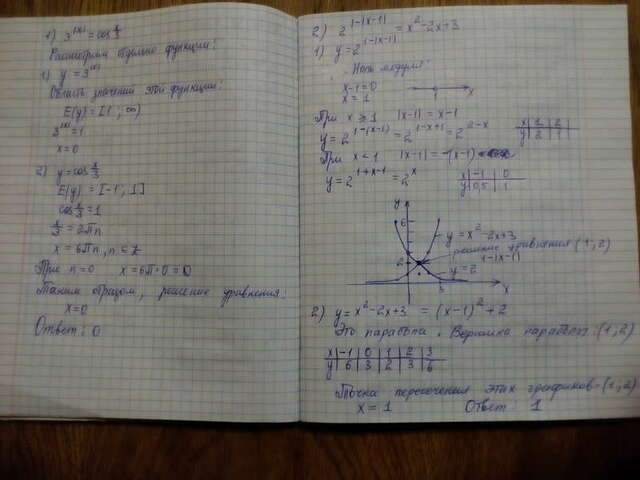 1) 3^|x| = cos x/3
Рассмотрим отдельно функции:
1) y = 3^|x|
Область значений этой функции:
E(y) = [1; ∞)
3^|x| = 1
x = 0
2) y = cos x/3
E(y) = [-1; 1]
cos x/3 = 1
x/3 = 2πn
x = 6πn, n ∈ Z
При n=0 x = 6π·0 = 0
Таким образом, решение уравнения
x=0
Ответ: 0
2) 2^1-|x-1| = x²-2x+3
1) y = 2^1-|x-1|
Ноль модуля:
x-1=0
x = 1
1 x
При x ≥ 1 |x-1| = x-1
y = 2^1-(x-1) = 2^1-x+1 = 2^2-x
x 1 2
y 2 1
При x < 1 |x-1| = -(x-1)
y = 2^1+x-1 = 2^x
x -1 0
y 0,5 1
y
6
y = x²-2x+3
решение уравнения (1;2)
2
y = 2^1-|x-1|
1 3 x
2) y = x²-2x+3 = (x-1)² + 2
Это парабола. Вершина параболы: (1;2)
x -1 0 1 2 3
y 6 3 2 3 6
Точка пересечения этих графиков-(1;2)
x = 1 Ответ 1